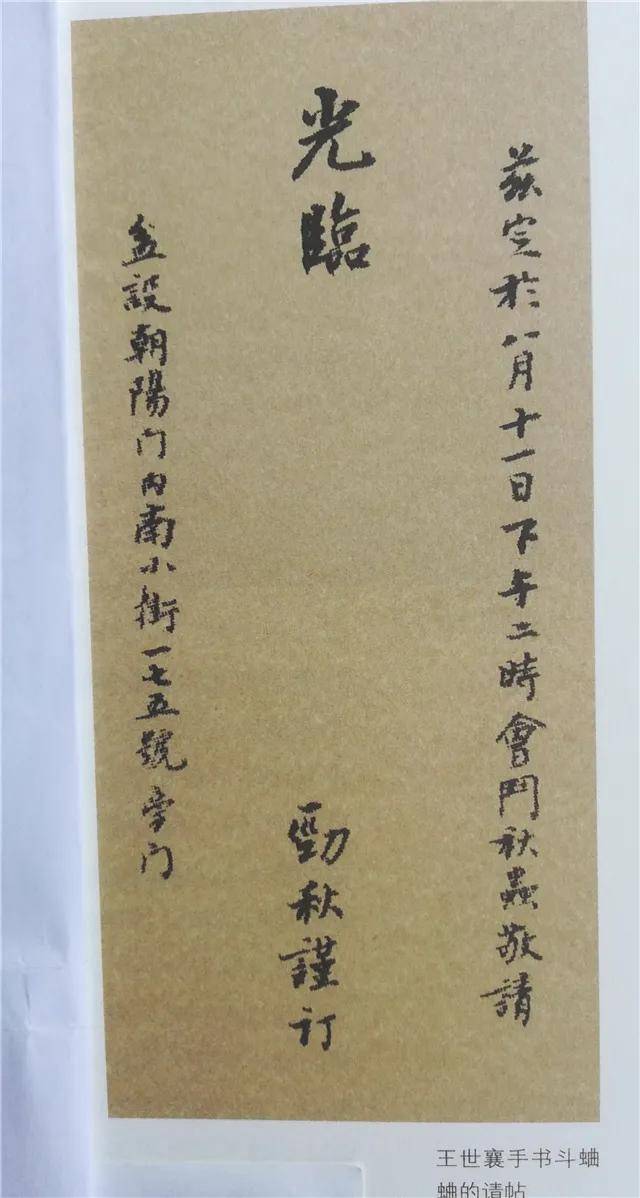 茲定於八月十一日下午二時會鬥秋蟲敬請
光臨
勁秋謹訂
盆設朝陽门内南小街一七五號旁门
王世襄手书斗蛐
蛐的请帖